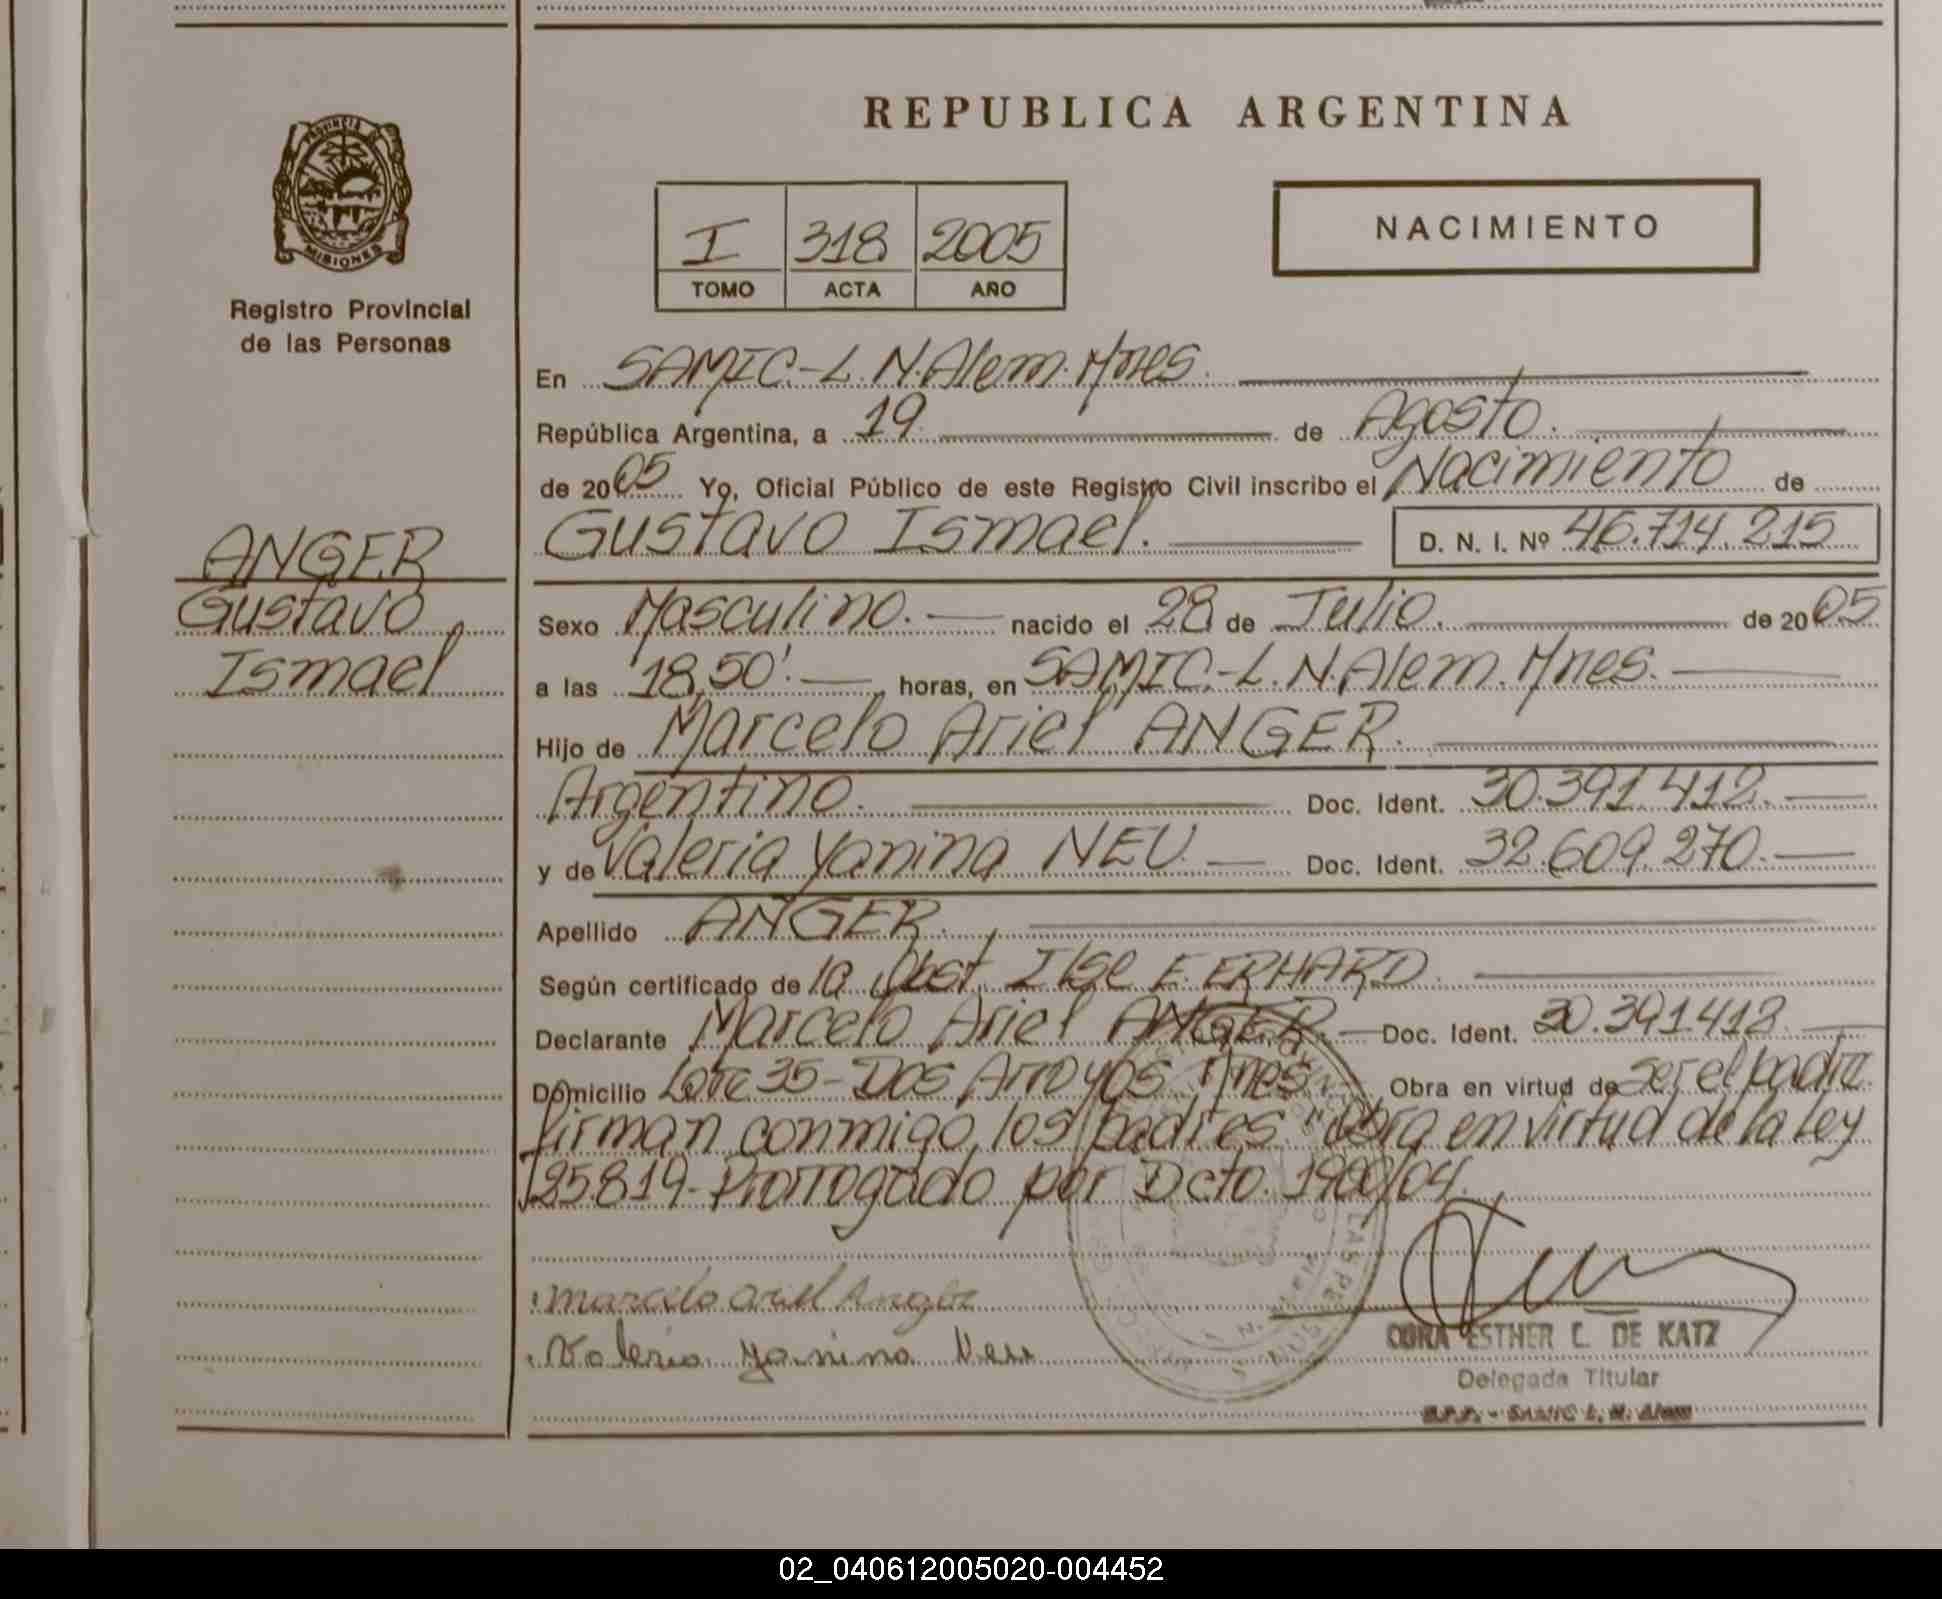 REPUBLICA ARGENTINA
PROVINCIA DE MISIONES
Registro Provincial
de las Personas
I 318 2005
TOMO ACTA AÑO
NACIMIENTO
En SAMIC.-L.N.Alem.Mnes.
República Argentina, a 19 de Agosto.
de 2005 Yo, Oficial Público de este Registro Civil inscribo el Nacimiento de
Gustavo Ismael. D. N. I. Nº 46.714.215
ANGER
Gustavo
Ismael
Sexo Masculino. nacido el 28 de Julio. de 2005
a las 18,50'. horas, en SAMIC.-L.N.Alem.Mnes.
Hijo de Marcelo Ariel ANGER.
Argentino. Doc. Ident. 30.391.412.
y de Valeria Yanina NEU. Doc. Ident. 32.609.270.
Apellido ANGER.
Según certificado de la Obst. Ilse E. ERHARD.
Declarante Marcelo Ariel ANGER. Doc. Ident. 30.391.412.
Domicilio Lote 35-Dos Arroyos Mnes. Obra en virtud de ser el padre
firman conmigo los padres "Obra en virtud de la Ley
25.819-Prorrogado por Dcto. 1900/04.
marcelo ariel Anger
Valeria Yanina Neu
CORA ESTHER C. DE KATZ
Delegada Titular
R.P.P. - SAMIC L. N. Alem
02_040612005020-004452